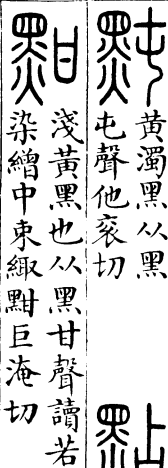 黗
黄濁黑从黑
屯聲他衮切
點
黚
淺黃黑也从黑甘聲讀若
染繒中束緅黚巨淹切